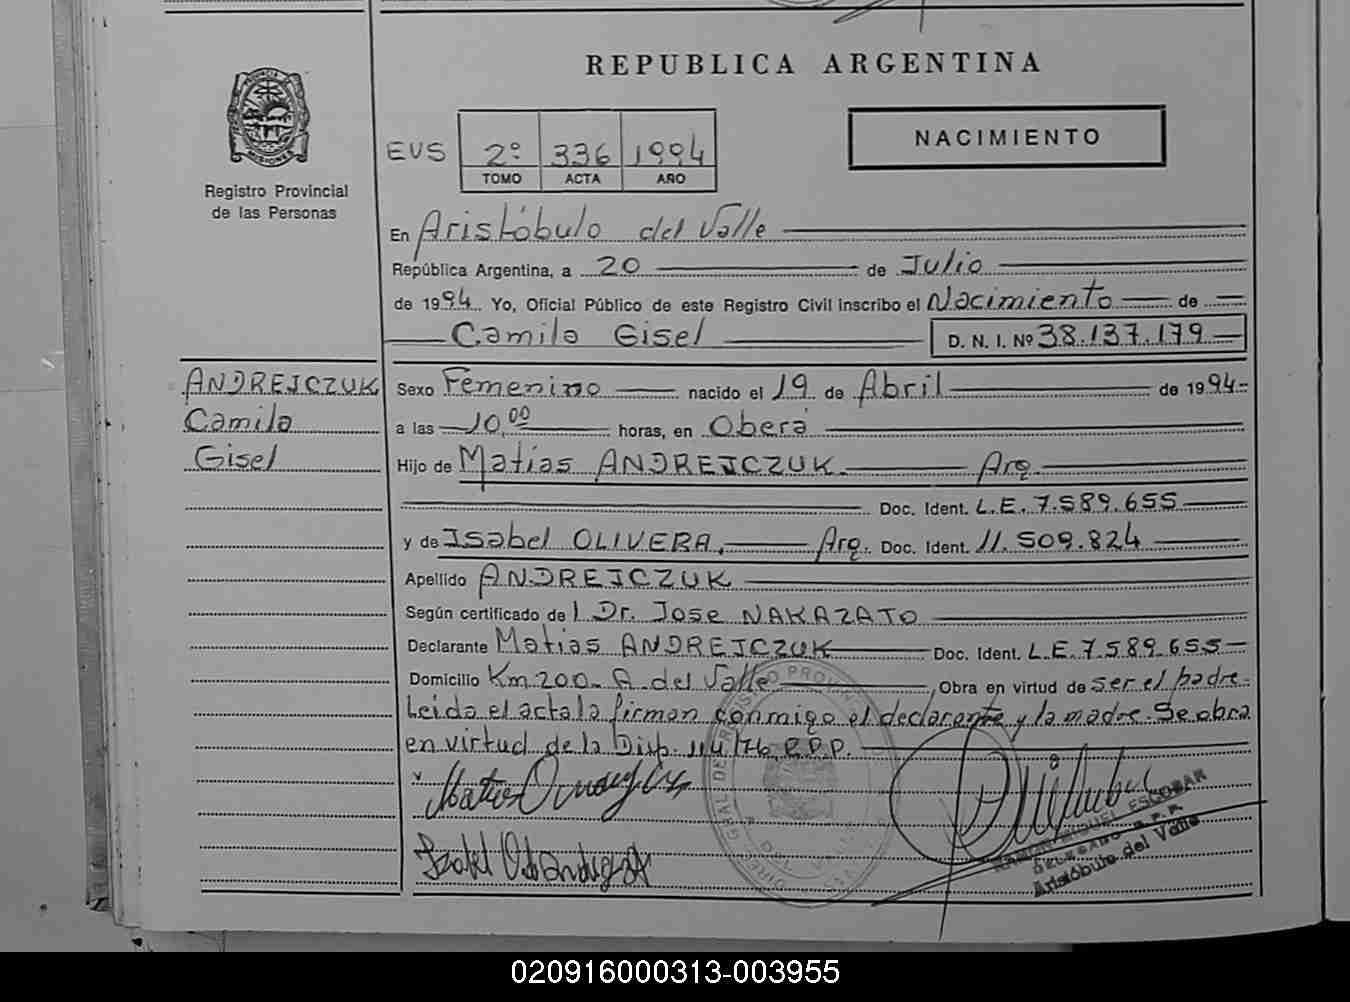 REPUBLICA ARGENTINA
PROVINCIA DE
MISIONES
Registro Provincial
de las Personas
EVS 2º 336 1994
TOMO ACTA AÑO
NACIMIENTO
En Aristóbulo del Valle
República Argentina, a 20 de Julio
de 1994 Yo, Oficial Público de este Registro Civil inscribo el Nacimiento de
Camila Gisel D. N. I. Nº 38.137.179
ANDREJCZUK
Camila
Gisel
Sexo Femenino nacido el 19 de Abril de 1994
a las 10,00 horas, en Oberá
Hijo de Matias ANDREJCZUK. Arq.
Doc. Ident. L.E. 7.589.655
y de Isabel OLIVERA, Arq. Doc. Ident. 11.509.824
Apellido ANDREJCZUK
Según certificado de l Dr. Jose NAKAZATO
Declarante Matias ANDREJCZUK Doc. Ident. L.E. 7.589.655
Domicilio Km 200- A. del Valle, Obra en virtud de ser el padre-
Leida el acta la firman conmigo el declarante y la madre. Se obra
en virtud de la Disp. 114/76 R.P.P.
MIGUEL ESCOBAR
DELEGADO R.P.P.
Aristóbulo del Valle
020916000313-003955